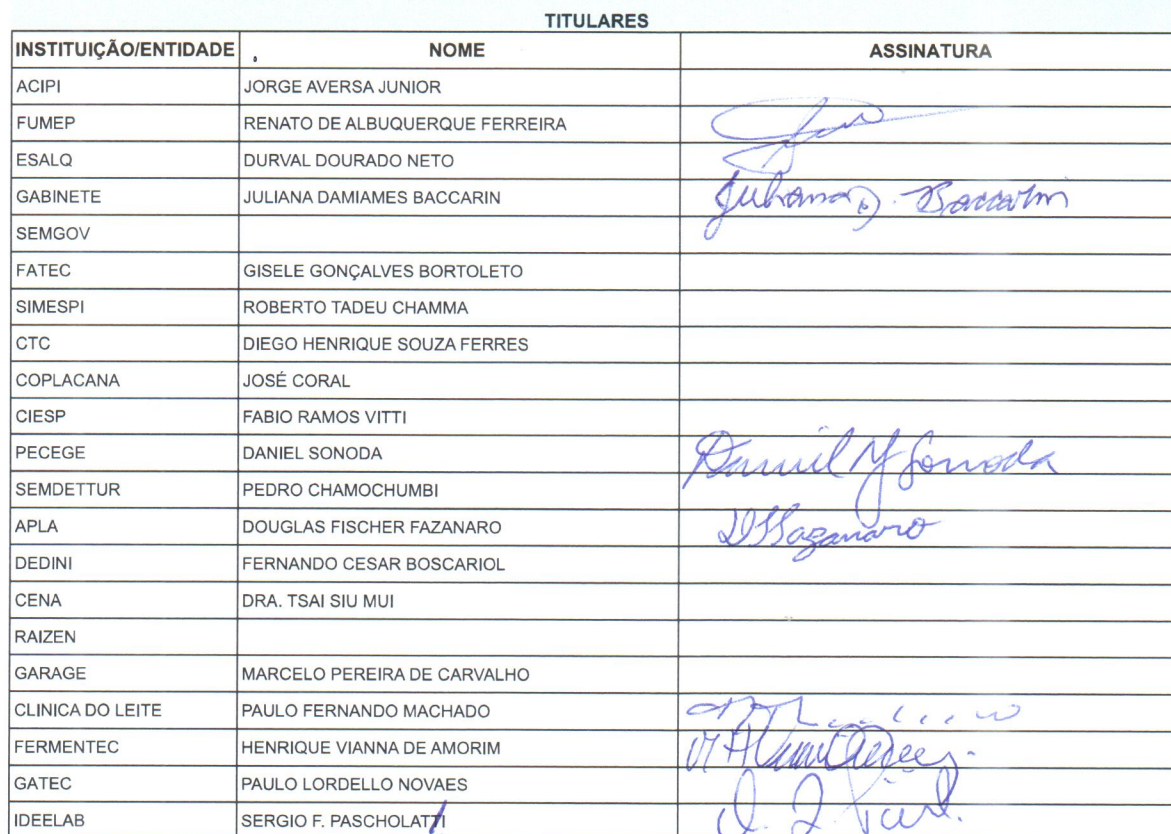 TITULARES
INSTITUIÇÃO/ENTIDADE NOME ASSINATURA
ACIPI JORGE AVERSA JUNIOR
FUMEP RENATO DE ALBUQUERQUE FERREIRA
ESALQ DURVAL DOURADO NETO
GABINETE JULIANA DAMIAMES BACCARIN Juliana D. Baccarin
SEMGOV
FATEC GISELE GONÇALVES BORTOLETO
SIMESPI ROBERTO TADEU CHAMMA
CTC DIEGO HENRIQUE SOUZA FERRES
COPLACANA JOSÉ CORAL
CIESP FABIO RAMOS VITTI
PECEGE DANIEL SONODA Daniel Y Sonoda
SEMDETTUR PEDRO CHAMOCHUMBI
APLA DOUGLAS FISCHER FAZANARO DFFazanaro
DEDINI FERNANDO CESAR BOSCARIOL
CENA DRA. TSAI SIU MUI
RAIZEN
GARAGE MARCELO PEREIRA DE CARVALHO
CLINICA DO LEITE PAULO FERNANDO MACHADO
FERMENTEC HENRIQUE VIANNA DE AMORIM
GATEC PAULO LORDELLO NOVAES
IDEELAB SERGIO F. PASCHOLATTI